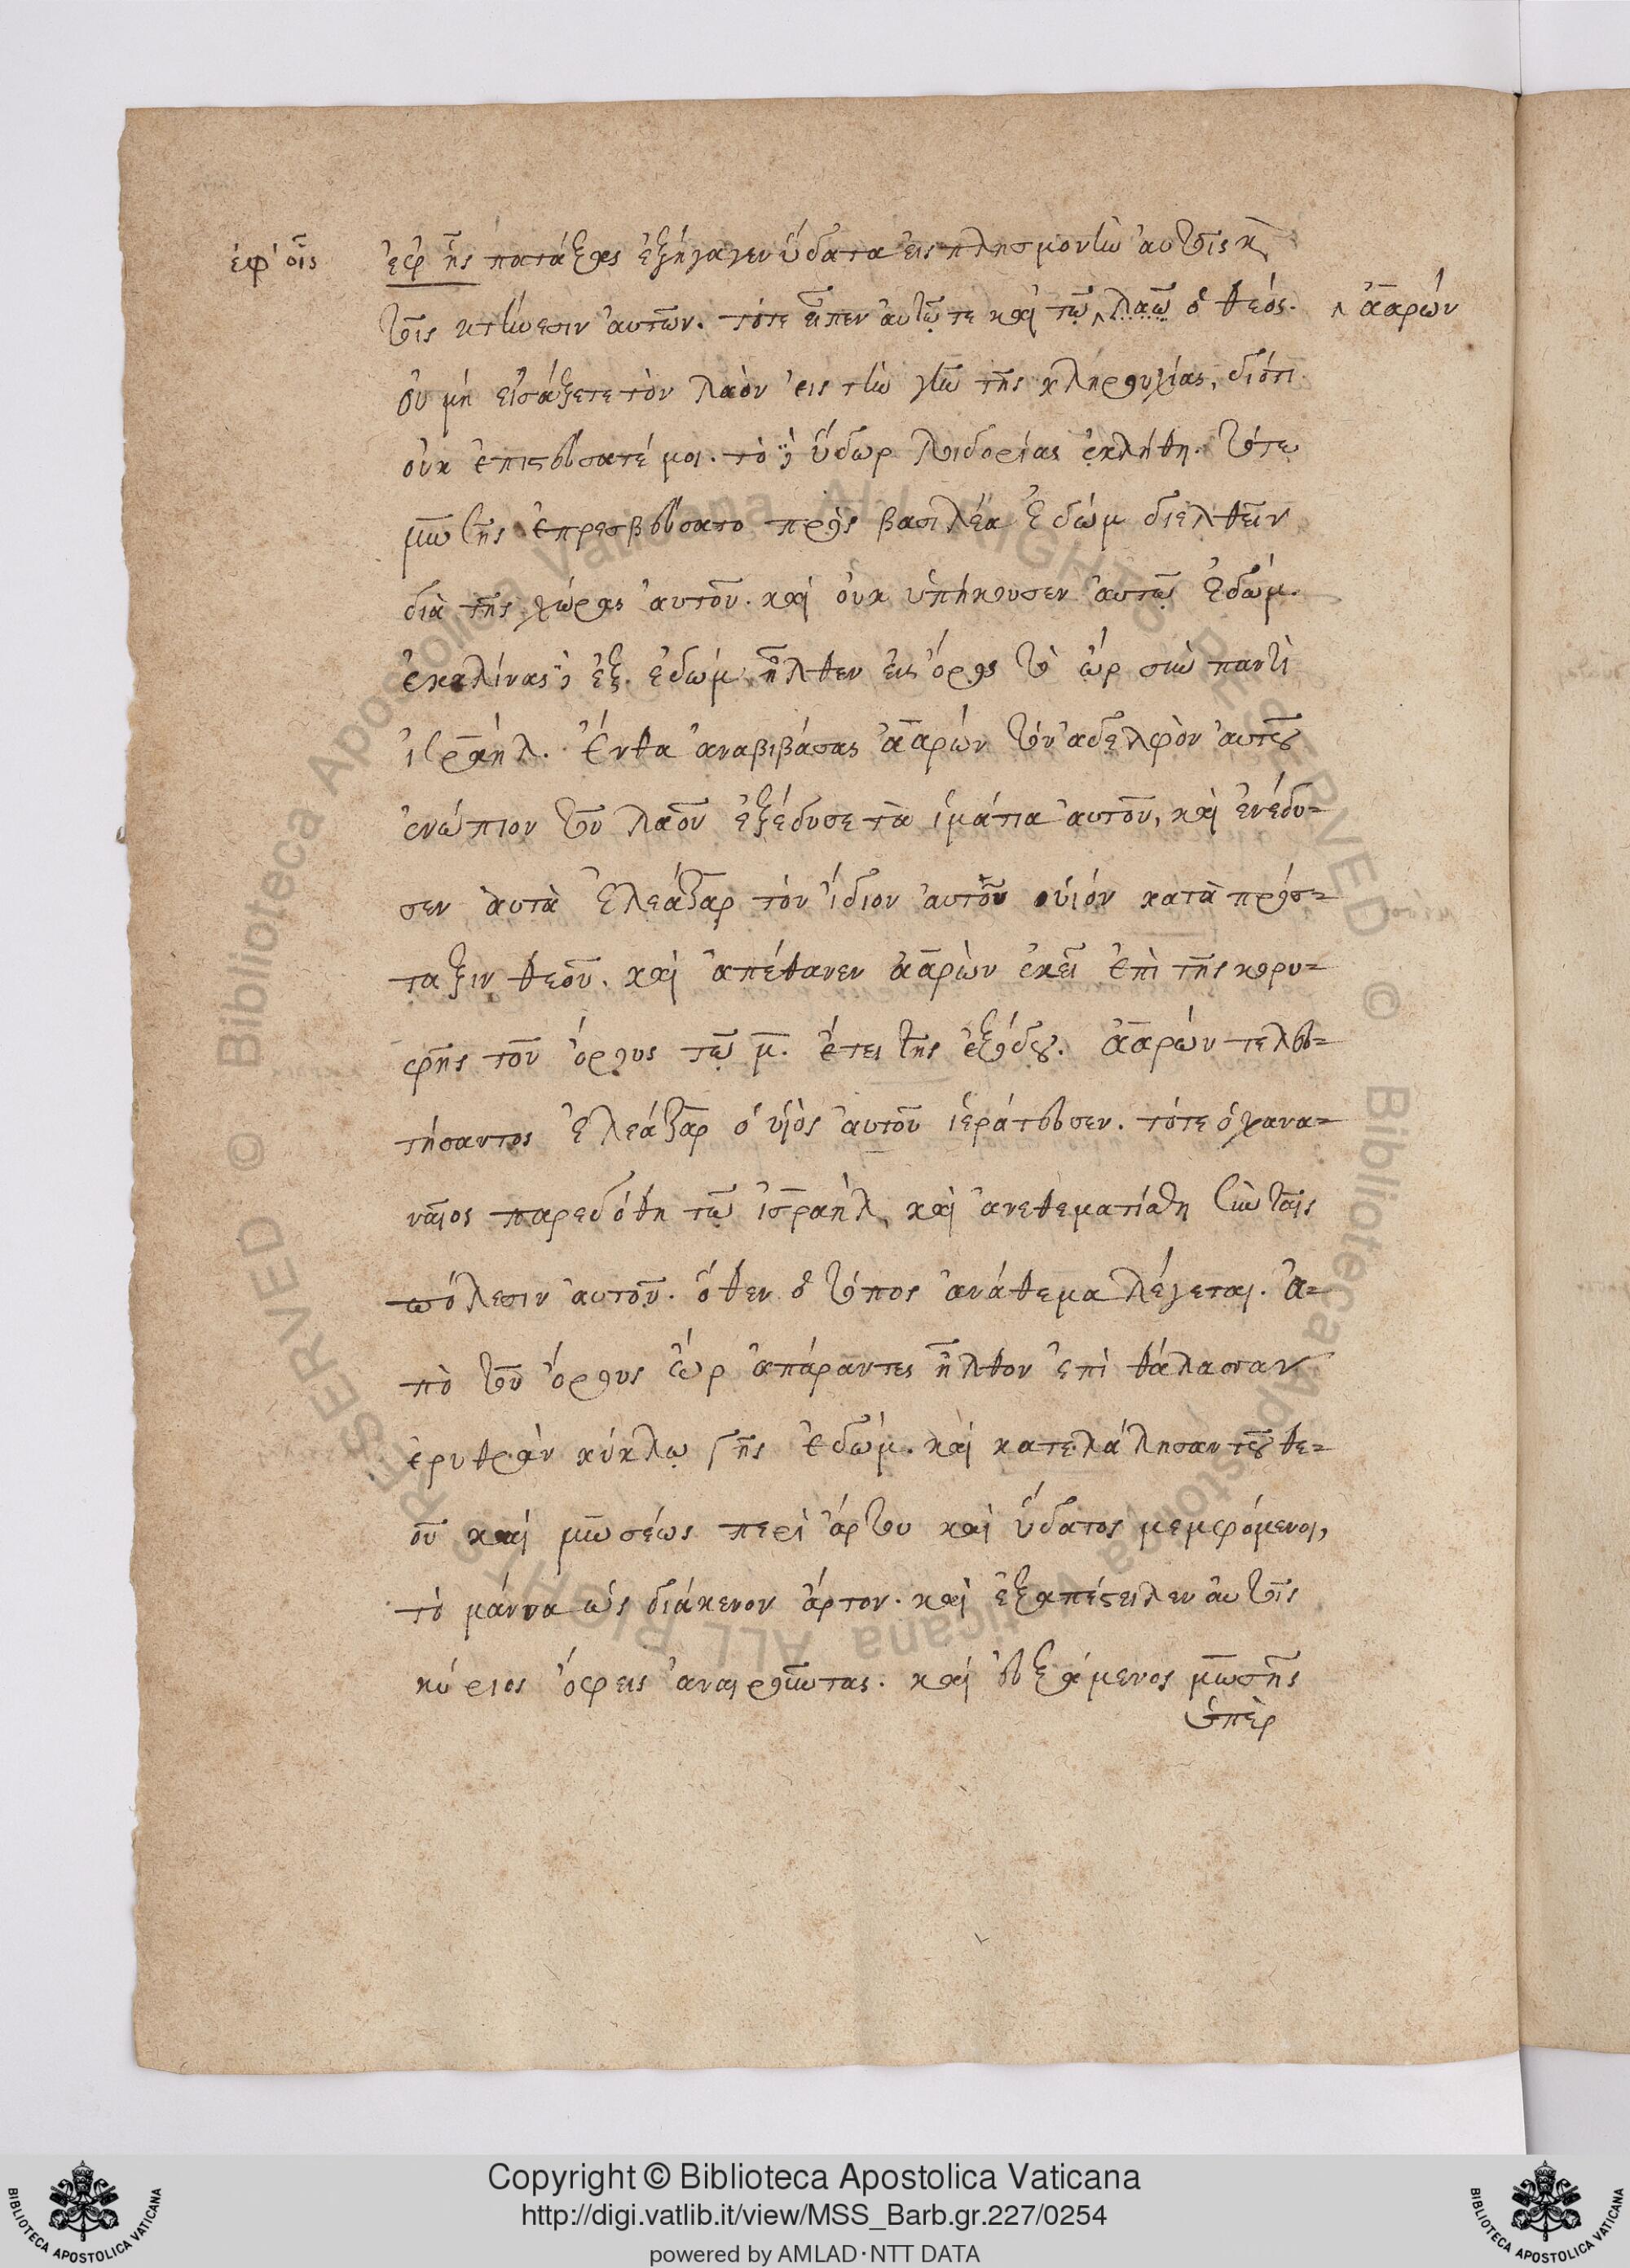 ἐφ' οἷς
ἐφ ἧς πατάξας ἐξήγαγεν ὕδατα εἰς πλησμονὴν αὐτοῖς κ
τοῖς κτήνεσιν αὐτῶν. τότε εἶπεν αὐτῷ τε καὶ τῷ λαῷ ὁ θεός. ἀαρών
οὐ μὴ εἰσάξετε τὸν λαὸν εἰς τὴν γῆν τῆς κληρουχίας, διότι
οὐκ ἐπιστεύσατέ μοι. τὸ ὕδωρ λοιδορίας ἐκλήθη. τότε
μωσῆς ἐπρεσβεύσατο πρὸς βασιλέα Ἐδώμ διελθεῖν
διὰ τῆς χώρας αὐτοῦ. καὶ οὐκ ὑπήκουσεν αὐτῷ Ἐδώμ.
ἐκκλίνας ἐξ ἐδώμ ἦλθεν εἰς ὄρος τὸ ὢρ σὺν παντὶ
ἰσραήλ. ἔνθα ἀναβιβάσας ἀαρών τὸν ἀδελφὸν αὐτοῦ
ἐνώπιον τοῦ λαοῦ ἐξέδυσε τὰ ἱμάτια αὐτοῦ, καὶ ἐνέδυ=
σεν αὐτὰ Ἐλεάζαρ τὸν ἴδιον αὐτοῦ υἱόν κατὰ πρόσ=
ταξιν θεοῦ. καὶ ἀπέθανεν ἀαρὼν ἐκεῖ ἐπὶ τῆς κορυ=
φῆς τοῦ ὄρους τῷ μ. ἔτει τῆς ἐξόδου. ἀαρών τελευ=
τήσαντος Ἐλεάζαρ ὁ υἱὸς αὐτοῦ ἱεράτευσεν. τότε ὁ χανα=
ναῖος παρεδόθη τῷ ἰσραὴλ, καὶ ἀνεθεματίσθη σὺν ταῖς
πόλεσιν αὐτοῦ. ὅθεν ὁ τόπος ἀνάθεμα λέγεται. ἀ=
πὸ τοῦ ὄρους ὢρ ἀπάραντες ἦλθον ἐπὶ θάλασσαν
ἐρυθρὰν κύκλῳ γῆς Ἐδώμ. καὶ κατελάλησαν τοῦ θε=
οῦ καὶ μωσέως περὶ ἄρτου καὶ ὕδατος μεμφόμενοι,
τὸ μάννα ὡς διάκενον ἄρτον. καὶ ἐξαπέστειλεν αὐτοῖς
κύριος ὄφεις ἀναιροῦντας. καὶ εὐξάμενος μωσῆς
ὑπὲρ
Copyright © Biblioteca Apostolica Vaticana
http://digi.vatlib.it/view/MSS_Barb.gr.227/0254
powered by AMLAD·NTT DATA